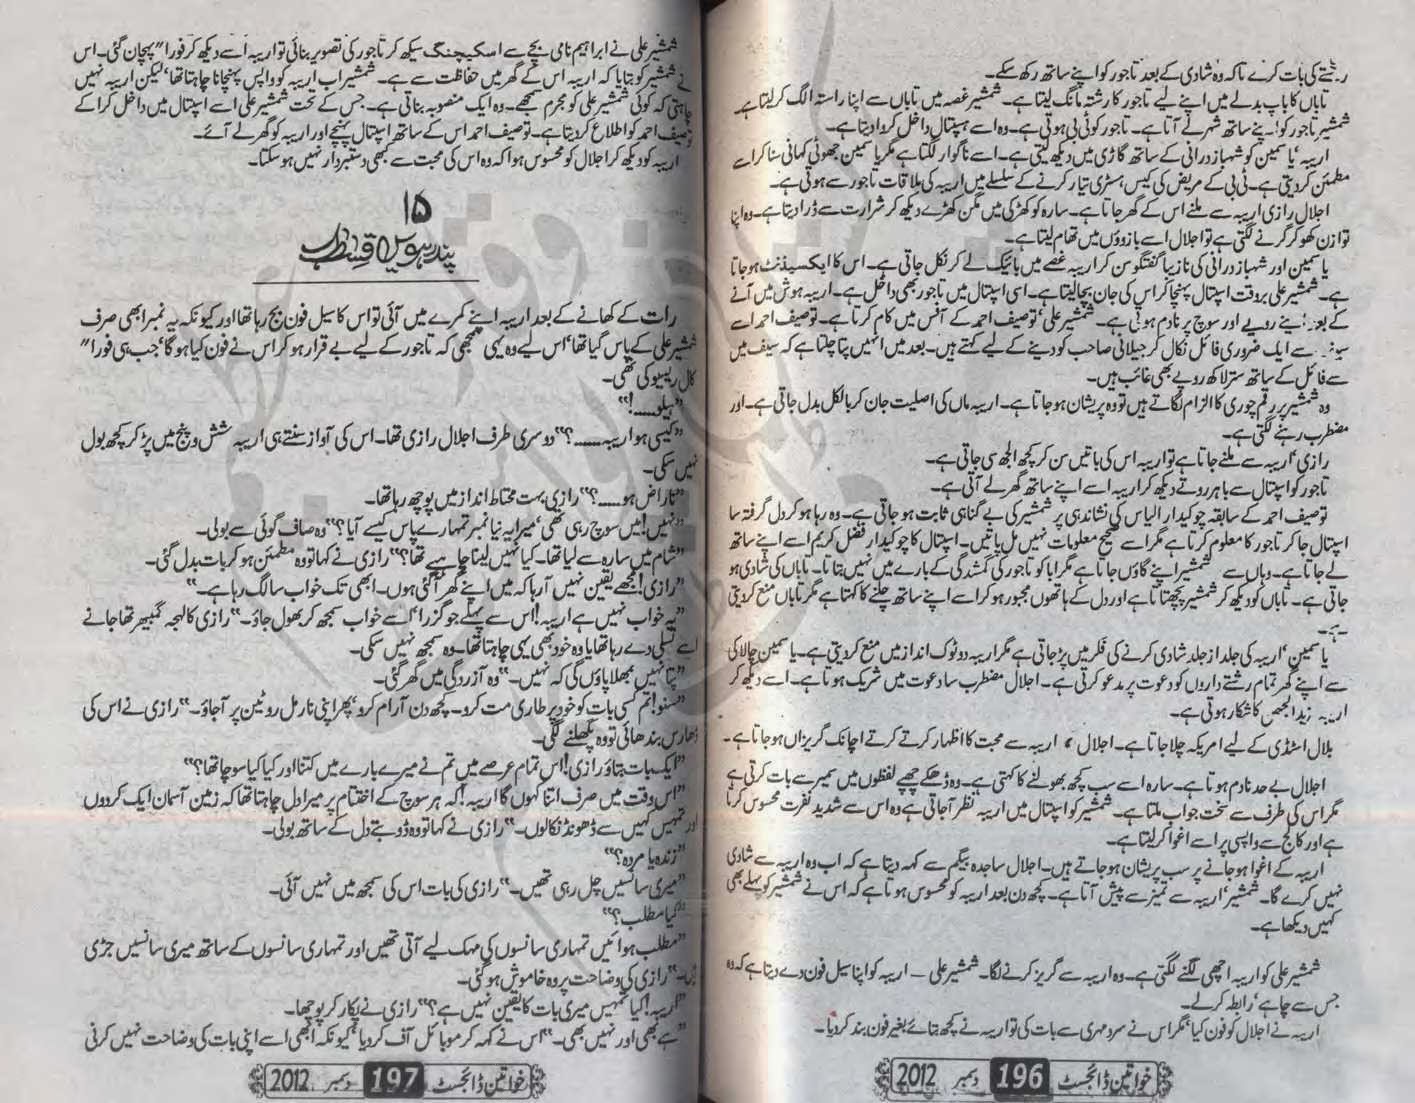 رشتے کی بات کرے تاکہ وہ شادی کے بعد تاجور کو اپنے ساتھ رکھ سکے۔
تاباں کا باپ بدلے میں اپنے لیے تاجور کا رشتہ مانگ لیتا ہے۔ شمشیر غصہ میں تاباں سے اپنا راستہ الگ کرلیتا ہے
شمشیر تاجور کو اپنے ساتھ شہر لے آتا ہے۔ تاجور کو ٹی بی ہوتی ہے۔ وہ اسے ہسپتال داخل کروادیتا ہے۔
اریبہ، یاسمین کو شہباز درانی کے ساتھ گاڑی میں دیکھ لیتی ہے۔ اسے ناگوار لگتا ہے مگر یاسمین جھوٹی کہانی سنا کر اسے
مطمئن کردیتی ہے۔ ٹی بی کے مریض کی کیس ہسٹری تیار کرنے کے سلسلے میں اریبہ کی ملاقات تاجور سے ہوتی ہے۔
اجلال رازی اریبہ سے ملنے اس کے گھر جاتا ہے۔ سارہ کو کھڑکی میں مگن کھڑے دیکھ کر شرارت سے ڈرا دیتا ہے۔ وہ اپنا
توازن کھو کر گرنے لگتی ہے تو اجلال اسے بازوؤں میں تھام لیتا ہے۔
یاسمین اور شہباز درانی کی نازیبا گفتگو سن کر اریبہ غصے میں بائیک لے کر نکل جاتی ہے۔ اس کا ایکسیڈنٹ ہوجاتا
ہے۔ شمشیر علی بروقت اسپتال پہنچا کر اس کی جان بچالیتا ہے۔ اسی اسپتال میں تاجور بھی داخل ہے۔ اریبہ ہوش میں آنے
کے بعد اپنے رویے اور سوچ پر نادم ہوتی ہے۔ شمشیر علی، توصیف احمد کے آفس میں کام کرتا ہے۔ توصیف احمد اسے
سے ایک ضروری فائل نکال کر جیلانی صاحب کو دینے کے لیے کہتے ہیں۔ بعد میں انہیں پتا چلتا ہے کہ سیف میں
سے فائل کے ساتھ ستر لاکھ روپے بھی غائب ہیں۔
وہ شمشیر پر رقم چوری کا الزام لگاتے ہیں تو وہ پریشان ہوجاتا ہے۔ اریبہ ماں کی اصلیت جان کر بالکل بدل جاتی ہے۔ اور
مضطرب رہنے لگتی ہے۔
رازی، اریبہ سے ملنے جاتا ہے تو اریبہ اس کی باتیں سن کر کچھ الجھ سی جاتی ہے۔
تاجور کو اسپتال سے باہر روتے دیکھ کر اریبہ اسے اپنے ساتھ گھر لے آتی ہے۔
توصیف احمد کے سابقہ چوکیدار الیاس کی نشاندہی پر شمشیر کی بے گناہی ثابت ہوجاتی ہے۔ وہ رہا ہو کر دل گرفتہ سا
اسپتال جا کر تاجور کا معلوم کرتا ہے مگر اسے صحیح معلومات نہیں مل پاتیں۔ اسپتال کا چوکیدار فضل کریم اسے اپنے ساتھ
لے جاتا ہے۔ وہاں سے شمشیر اپنے گاؤں جاتا ہے مگر ابا کو تاجور کی گمشدگی کے بارے میں نہیں بتاتا۔ تاباں کی شادی ہو
جاتی ہے۔ تاباں کو دیکھ کر شمشیر پچھتاتا ہے اور دل کے ہاتھوں مجبور ہو کر اسے اپنے ساتھ چلنے کا کہتا ہے مگر تاباں منع کردیتی
ہے۔
یاسمین، اریبہ کی جلد از جلد شادی کرنے کی فکر میں پڑجاتی ہے مگر اریبہ دو ٹوک انداز میں منع کردیتی ہے۔ یاسمین چالاکی
سے اپنے گھر تمام رشتے داروں کو دعوت پر مدعو کرتی ہے۔ اجلال مضطرب سا دعوت میں شریک ہوتا ہے۔ اسے دیکھ کر
اریبہ مزید الجھن کا شکار ہوتی ہے۔
بلال اسٹڈی کے لیے امریکہ چلا جاتا ہے۔ اجلال، اریبہ سے محبت کا اظہار کرتے کرتے اچانک گریزاں ہوجاتا ہے۔
اجلال بے حد نادم ہوتا ہے۔ سارہ اسے سب کچھ بھولنے کا کہتی ہے۔ وہ ڈھکے چھپے لفظوں میں سمیر سے بات کرتی ہے
مگر اس کی طرف سے سخت جواب ملتا ہے۔ شمشیر کو اسپتال میں اریبہ نظر آجاتی ہے وہ اس سے شدید نفرت محسوس کرتا
ہے اور کالج سے واپسی پر اسے اغوا کرلیتا ہے۔
اریبہ کے اغوا ہوجانے پر سب پریشان ہوجاتے ہیں۔ اجلال ساجدہ بیگم سے کہہ دیتا ہے کہ اب وہ اریبہ سے شادی
نہیں کرے گا۔ شمشیر، اریبہ سے تمیز سے پیش آتا ہے۔ کچھ دن بعد اریبہ کو محسوس ہوتا ہے کہ اس نے شمشیر کو پہلے بھی
کہیں دیکھا ہے۔
شمشیر علی کو اریبہ اچھی لگنے لگتی ہے۔ وہ اریبہ سے گریز کرنے لگا۔ شمشیر علی ۔ اریبہ کو اپنا سیل فون دے دیتا ہے کہ وہ
جس سے چاہے، رابطہ کرلے۔
اریبہ نے اجلال کو فون کیا، مگر اس نے سرد مہری سے بات کی تو اریبہ نے کچھ بتائے بغیر فون بند کردیا۔
خواتین ڈائجسٹ 196 دسمبر 2012
شمشیر علی نے ابراہیم نامی بچے سے اسکیچنگ سیکھ کر تاجور کی تصویر بنائی تو اریبہ اسے دیکھ کر فورا" پہچان گئی۔ اس
نے شمشیر کو بتایا کہ اریبہ اس کے گھر میں حفاظت سے ہے۔ شمشیر اب اریبہ کو واپس پہنچانا چاہتا تھا، لیکن اریبہ نہیں
چاہتی کہ کوئی شمشیر علی کو مجرم سمجھے۔ وہ ایک منصوبہ بناتی ہے۔ جس کے تحت شمشیر علی اسے اسپتال میں داخل کرا کے
توصیف احمد کو اطلاع کردیتا ہے۔ توصیف احمد اس کے ساتھ اسپتال پہنچے اور اریبہ کو گھر لے آئے۔
اریبہ کو دیکھ کر اجلال کو محسوس ہوا کہ وہ اس کی محبت سے کبھی دستبردار نہیں ہوسکتا۔
۱۵
پندرہویں قسط
رات کے کھانے کے بعد اریبہ اپنے کمرے میں آئی تو اس کا سیل فون بج رہا تھا اور کیونکہ یہ نمبر ابھی صرف
شمشیر علی کے پاس گیا تھا، اس لیے وہ یہی سمجھی کہ تاجور کے لیے بے قرار ہو کر اس نے فون کیا ہوگا، جب ہی فورا"
کال ریسیو کی تھی۔
"ہیلو......!"
"کیسی ہو اریبہ......؟" دوسری طرف اجلال رازی تھا۔ اس کی آواز سنتے ہی اریبہ شش و پنج میں پڑ کر کچھ بول
نہیں سکی۔
"ناراض ہو......؟" رازی بہت محتاط انداز میں پوچھ رہا تھا۔
"نہیں! میں سوچ رہی تھی، میرا یہ نیا نمبر تمہارے پاس کیسے آیا؟" وہ صاف گوئی سے بولی۔
"شام میں سارہ سے لیا تھا۔ کیا نہیں لینا چاہیے تھا؟" رازی نے کہا تو وہ مطمئن ہو کر بات بدل گئی۔
"رازی! مجھے یقین نہیں آرہا کہ میں اپنے گھر آگئی ہوں۔ ابھی تک خواب سا لگ رہا ہے۔"
"یہ خواب نہیں ہے اریبہ! اس سے پہلے جو گزرا، اسے خواب سمجھ کر بھول جاؤ۔" رازی کا لہجہ گمبھیر تھا جانے
اسے تسلی دے رہا تھا یا وہ خود بھی یہی چاہتا تھا۔ وہ سمجھ نہیں سکی۔
"پتا نہیں بھلا پاؤں گی کہ نہیں۔" وہ آزردگی میں گھر گئی۔
"سنو! تم کسی بات کو خود پر طاری مت کرو۔ کچھ دن آرام کرو، پھر اپنی نارمل روٹین پر آجاؤ۔" رازی نے اس کی
ڈھارس بندھائی تو وہ پگھلنے لگی۔
"ایک بات بتاؤ رازی! اس تمام عرصے میں تم نے میرے بارے میں کتنا اور کیا کیا سوچا تھا؟"
"اس وقت میں صرف اتنا کہوں گا اریبہ! کہ ہر سوچ کے اختتام پر میرا دل چاہتا تھا کہ زمین آسمان ایک کردوں
اور تمہیں کہیں سے ڈھونڈ نکالوں۔" رازی نے کہا تو وہ ڈوبتے دل کے ساتھ بولی۔
"زندہ یا مردہ؟"
"میری سانسیں چل رہی تھیں۔" رازی کی بات اس کی سمجھ میں نہیں آئی۔
"کیا مطلب؟"
"مطلب ہوائیں تمہاری سانسوں کی مہک لیے آتی تھیں اور تمہاری سانسوں کے ساتھ میری سانسیں جڑی
ہیں۔" رازی کی وضاحت پر وہ خاموش ہوگئی۔
"اریبہ! کیا تمہیں میری بات کا یقین نہیں ہے؟" رازی نے پکار کر پوچھا۔
"ہے بھی اور نہیں بھی۔" اس نے کہہ کر موبائل آف کردیا، کیونکہ ابھی اسے اپنی بات کی وضاحت نہیں کرنی
خواتین ڈائجسٹ 197 دسمبر 2012